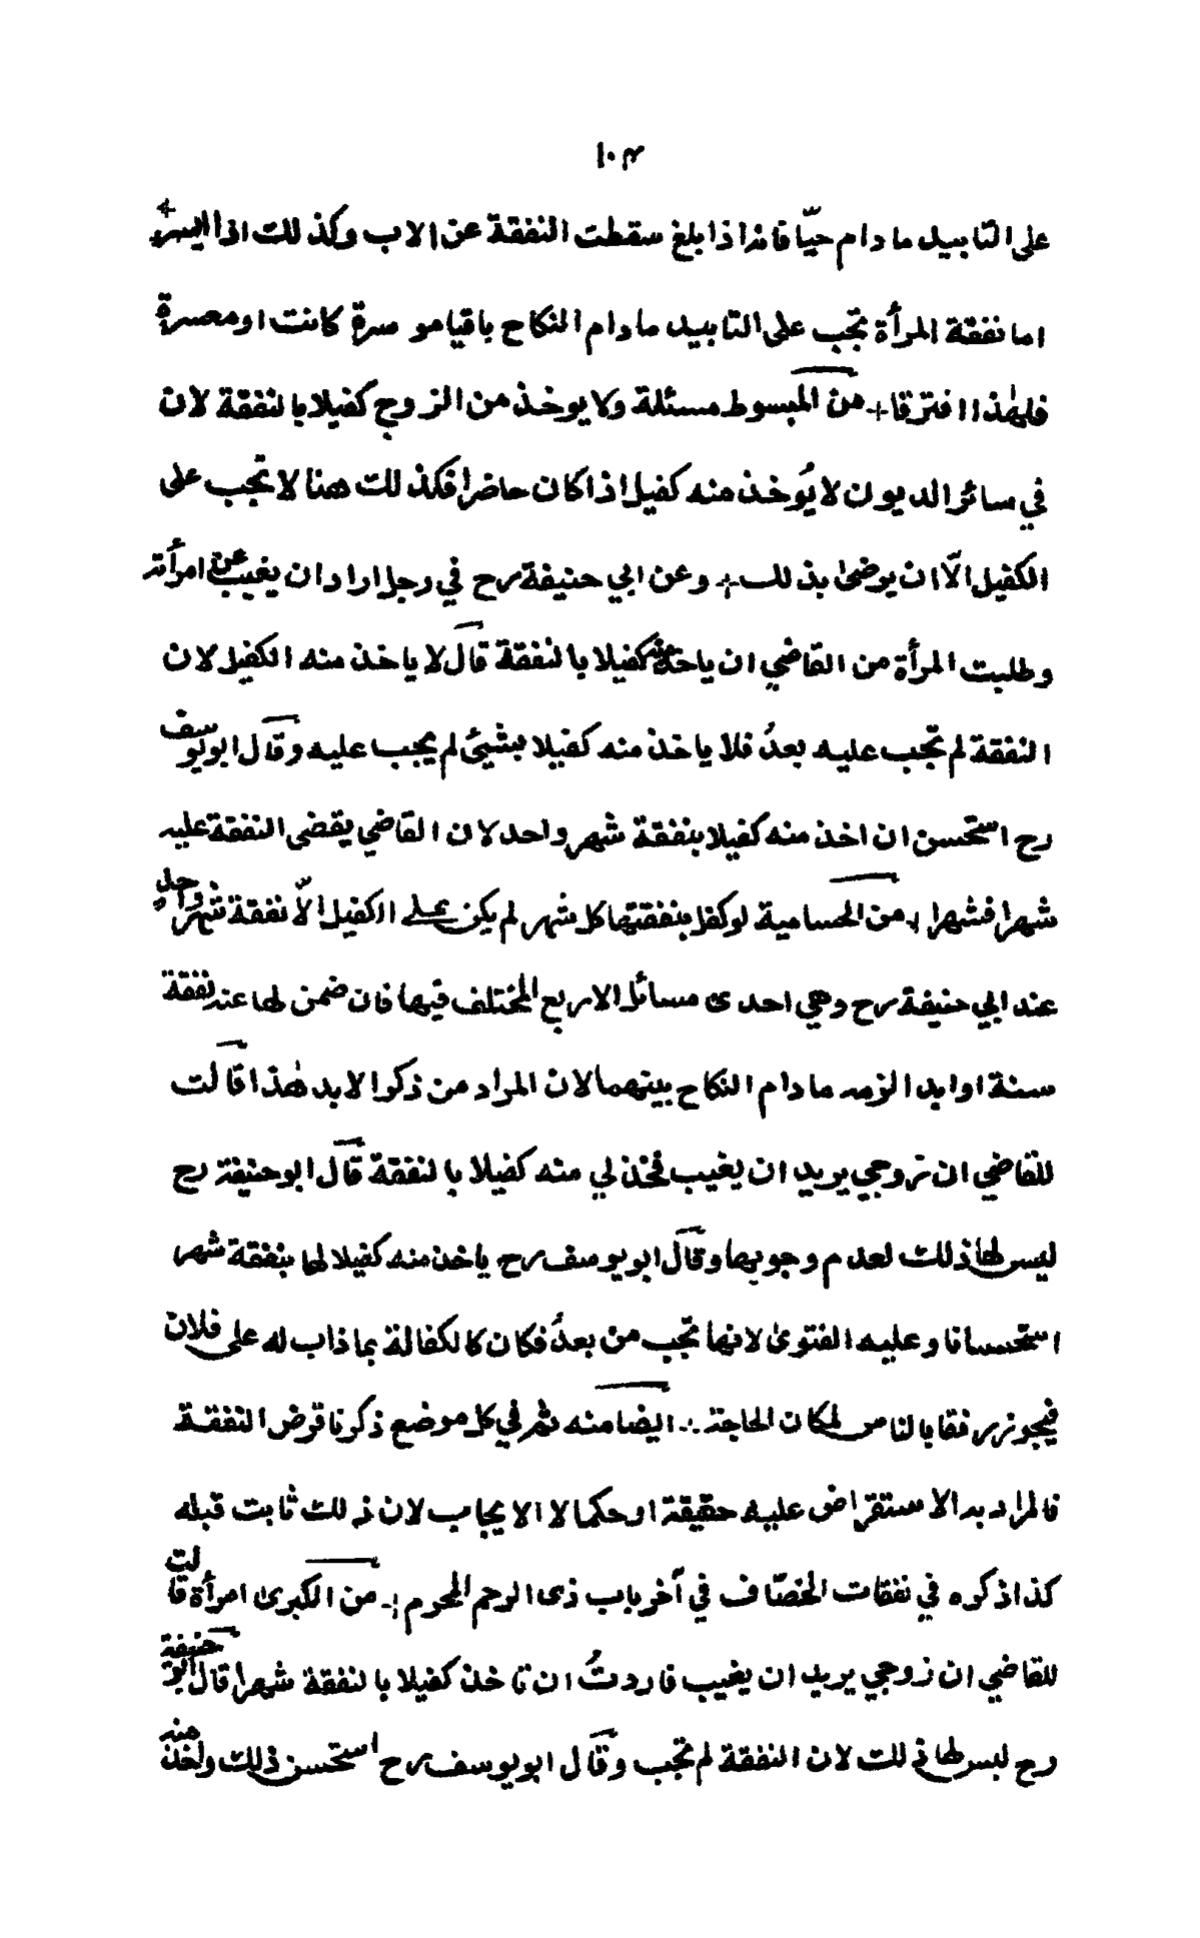 ١٠٣
على التابيد ما دام حيّا فانه اذا بلغ سقطت النفقة عن الاب وكذلك اذا ايسر +
اما نفقة المرأة تجب على التابيد ما دام النكاح باقيا موسرة كانت او معسرة
فلهذا افترقا + من المبسوط مسئلة ولا يوخذ من الزوج كفيلا بالنفقة لان
في سائر الديون لا يُوخذ منه كفيل اذا كان حاضرا فكذلك هنا لا تجب على
الكفيل الّا ان يوضىٰ بذلك + وعن ابي حنيفة رح في رجل اراد ان يغيب عن امرأته
وطلبت المرأة من القاضي ان ياخذ منه كفيلا بالنفقة قال لا ياخذ منه الكفيل لان
النفقة لم تجب عليه بعدُ فلا ياخذ منه كفيلا بشيئ لم يجب عليه وقال ابو يوسف
رح استحسن ان اخذ منه كفيلا بنفقة شهر واحد لان القاضي يقضى النفقة عليه
شهرا فشهرا + من الحسامية لو كفل بنفقتها كل شهر لم يكن على الكفيل الّا نفقة شهر واحد
عند ابي حنيفة رح وهي احدى مسائل الاربع المختلف فيها فان ضمن لها عند نفقة
سنة او ابد الزمه ما دام النكاح بينهما لان المراد من ذكر الابد هٰذا قالت
للقاضي ان زوجي يريد ان يغيب فخذ لي منه كفيلا بالنفقة قال ابو حنيفة رح
ليس لها ذلك لعدم وجوبها وقال ابو يوسف رح ياخذ منه كفيلا لها بنفقة شهر
استحسانا وعليه الفتوىٰ لانها تجب من بعدُ فكان كالكفالة بما ذاب له على فلان
فيجوز رفقا بالناس لمكان الحاجة ∴ ايضا منه ثم في كل موضع ذكرنا قرض النفقة
فالمراد به الاستقراض عليه حقيقة او حكما لا الايجاب لان ذلك ثابت قبله
كذا ذكره في نفقات الخصّاف في آخر باب ذى الرحم المحرم + من الكبرىٰ امرأة قالت
للقاضي ان زوجي يريد ان يغيب فاردتُ ان تاخذ كفيلا بالنفقة شهرا قال ابو حنيفة
رح ليس لها ذلك لان النفقة لم تجب وقال ابو يوسف رح استحسن ذلك واخذ منه